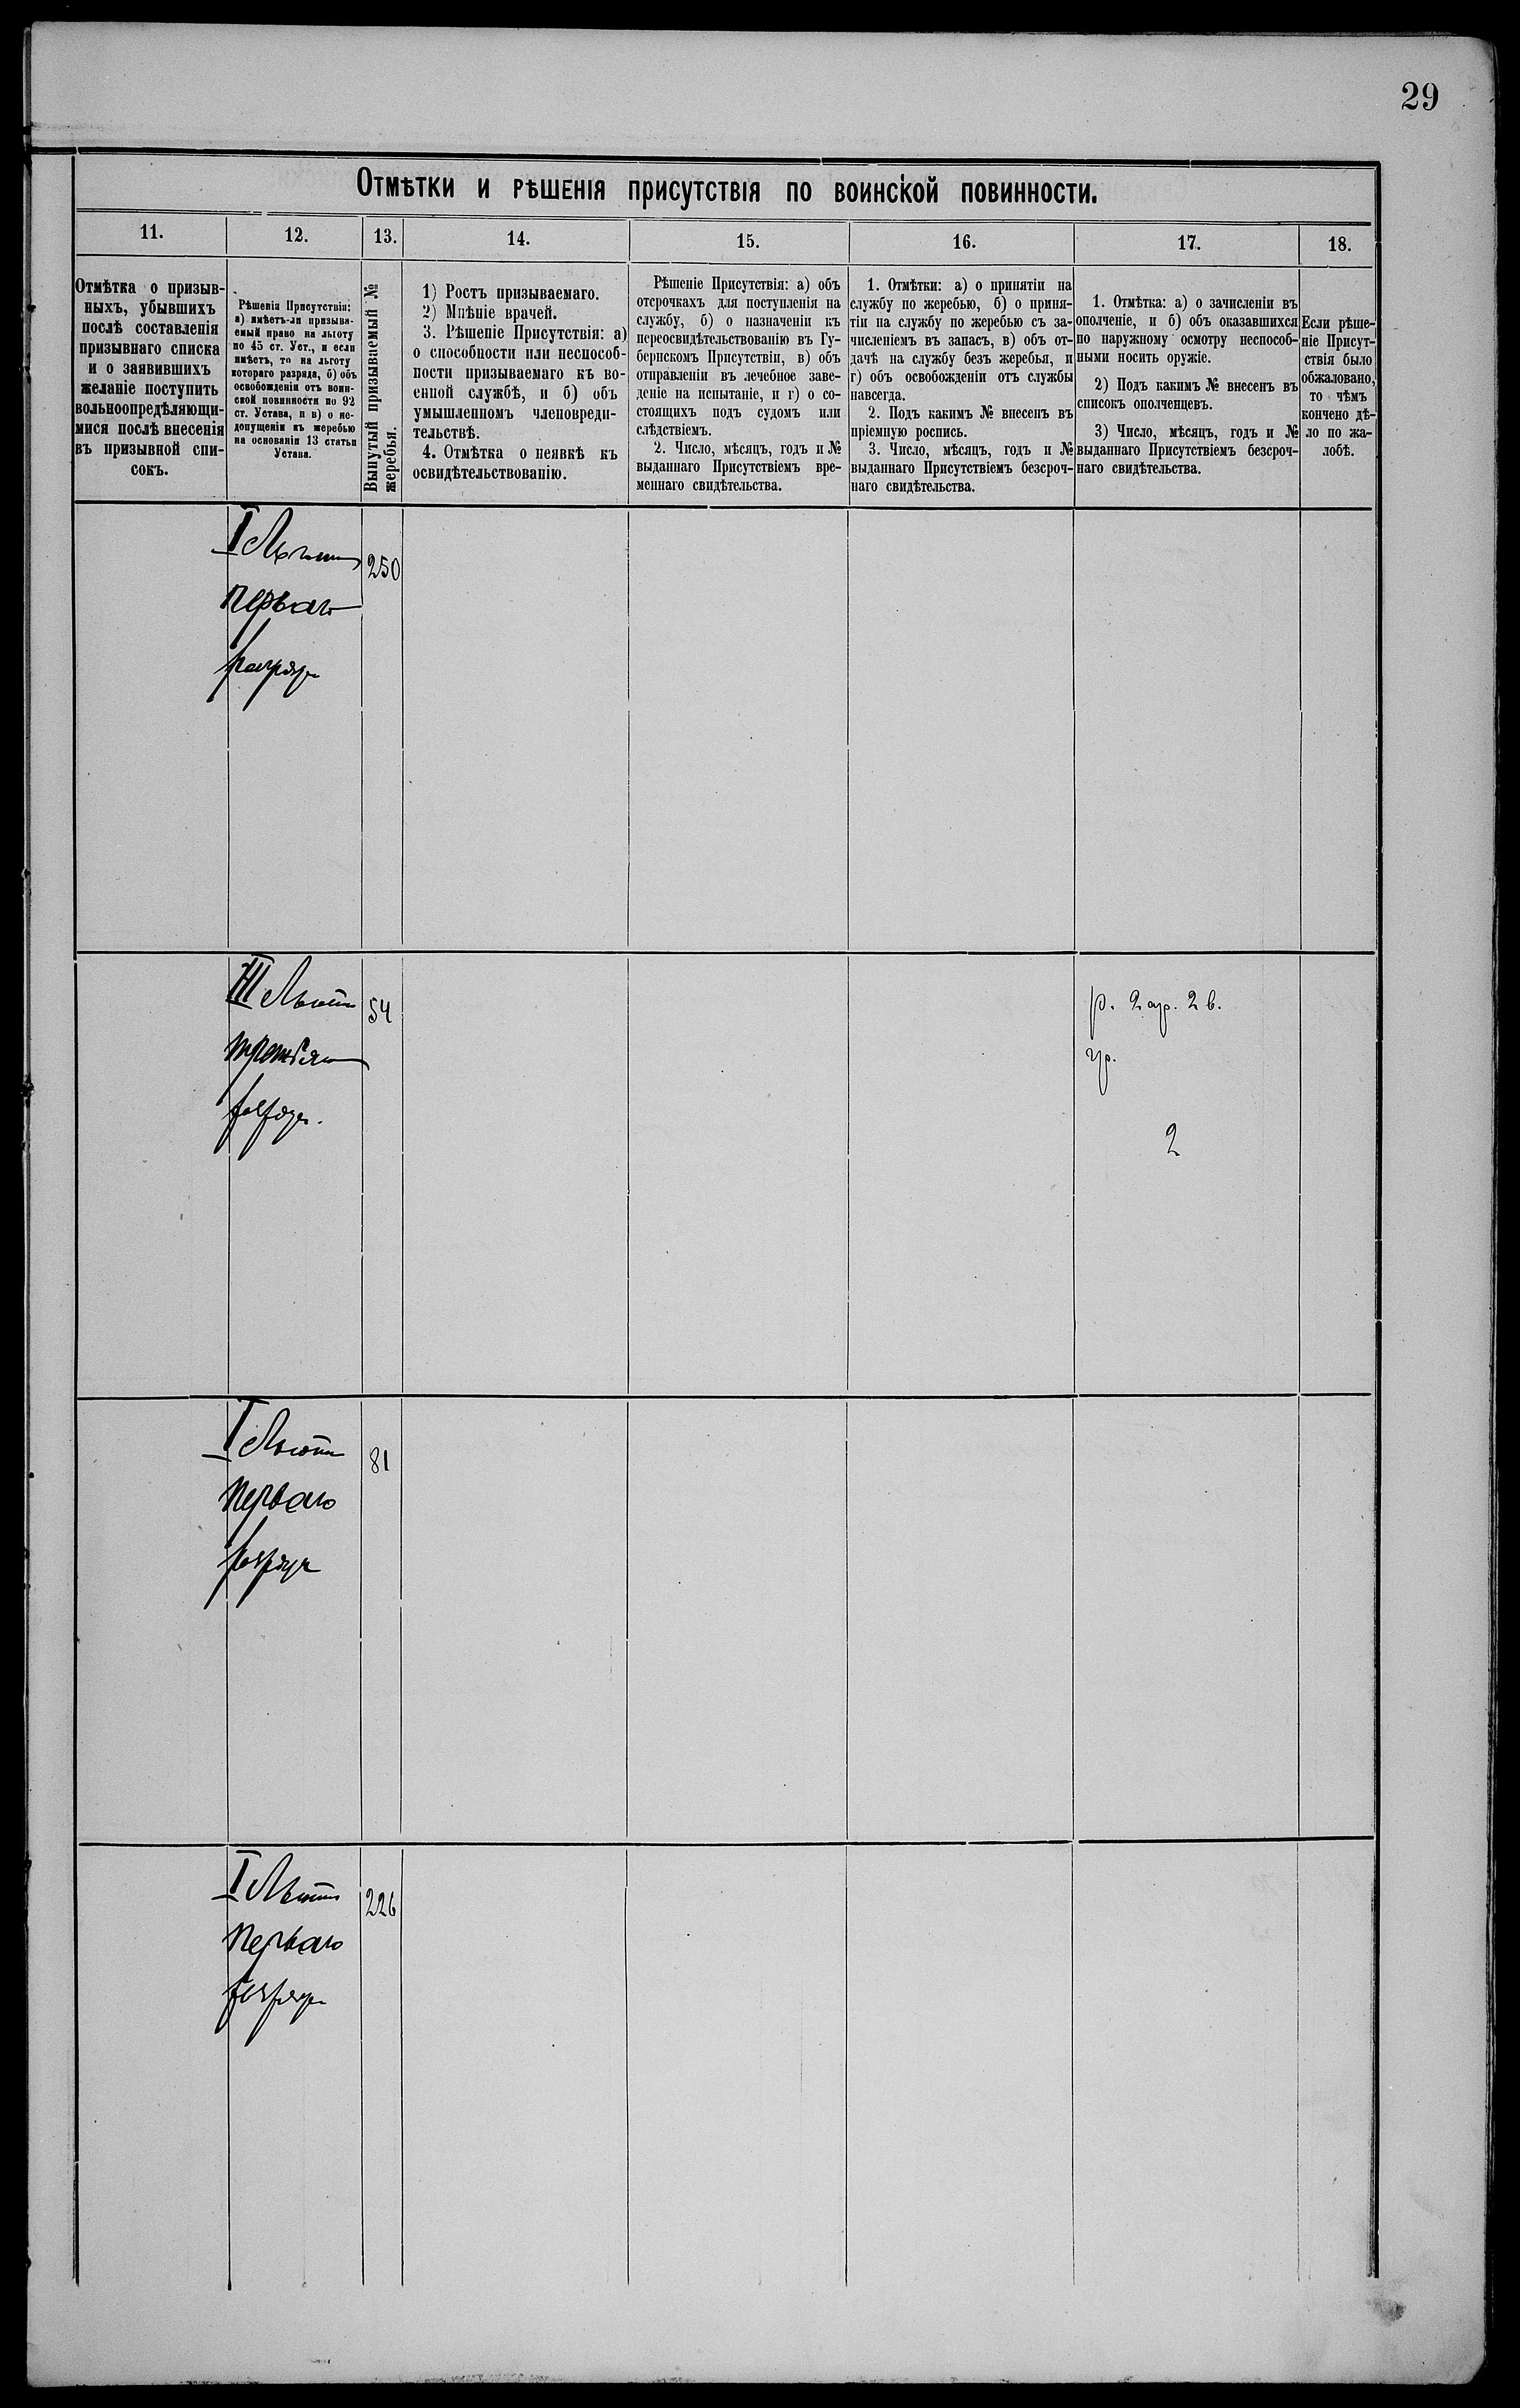 29
Отмѣтки и рѣшенія присутствія по воинской повинности.
11.
12.
13.
14.
15.
16.
17.
18.
Отмѣтка о призыв-
ныхъ, убывшихъ
послѣ составленія
призывнаго списка
и о заявившихъ
желаніе поступить
вольноопредѣляющи-
мися послѣ внесенія
въ призывной спи-
сокъ.
Рѣшенія Присутствія:
а) имѣетъ-ли призыва-
емый право на льготу
по 45 ст. Уст., и если
имѣетъ, то на льготу
котораго разряда, б) объ
освобожденіи отъ воин-
ской повинности по 92
ст. Устава, и в) о не-
допущеніи къ жеребью
на основаніи 13 статьи
Устава.
Вынутый призываемый №
жеребья.
1) Ростъ призываемаго.
2) Мнѣніе врачей.
3. Рѣшеніе Присутствія: а)
о способности или неспособ-
ности призываемаго къ во-
енной службѣ, и б) объ
умышленномъ членовреди-
тельствѣ.
4. Отмѣтка о неявкѣ къ
освидѣтельствованію.
Рѣшеніе Присутствія: а) объ
отсрочкахъ для поступленія на
службу, б) о назначеніи къ
переосвидѣтельствованію въ Гу-
бернскомъ Присутствіи, в) объ
отправленіи въ лечебное заве-
деніе на испытаніе, и г) о со-
стоящихъ подъ судомъ или
слѣдствіемъ.
2. Число, мѣсяцъ, годъ и №
выданнаго Присутствіемъ вре-
меннаго свидѣтельства.
1. Отмѣтки: а) о принятіи на
службу по жеребью, б) о приня-
тіи на службу по жеребью съ за-
численіемъ въ запасъ, в) объ от-
дачѣ на службу безъ жеребья, и
г) объ освобожденіи отъ службы
навсегда.
2. Подъ какимъ № внесенъ въ
пріемную роспись.
3. Число, мѣсяцъ, годъ и №
выданнаго Присутствіемъ безсроч-
наго свидѣтельства.
1. Отмѣтка: а) о зачисленіи въ
ополченіе, и б) объ оказавшихся
по наружному осмотру неспособ-
ными носить оружіе.
2) Подъ какимъ № внесенъ въ
списокъ ополченцевъ.
3) Число, мѣсяцъ, годъ и №
выданнаго Присутствіемъ безсроч-
наго свидѣтельства.
Если рѣше-
ніе Присут-
ствія было
обжаловано,
то чѣмъ
кончено дѣ-
ло по жа-
лобѣ.
I Льготы
250
перваго
разряда
III Льготы
54
третьяго
разряда.
2
I Льготы
81
перваго
разряда
I Льготы
226
перваго
разряда